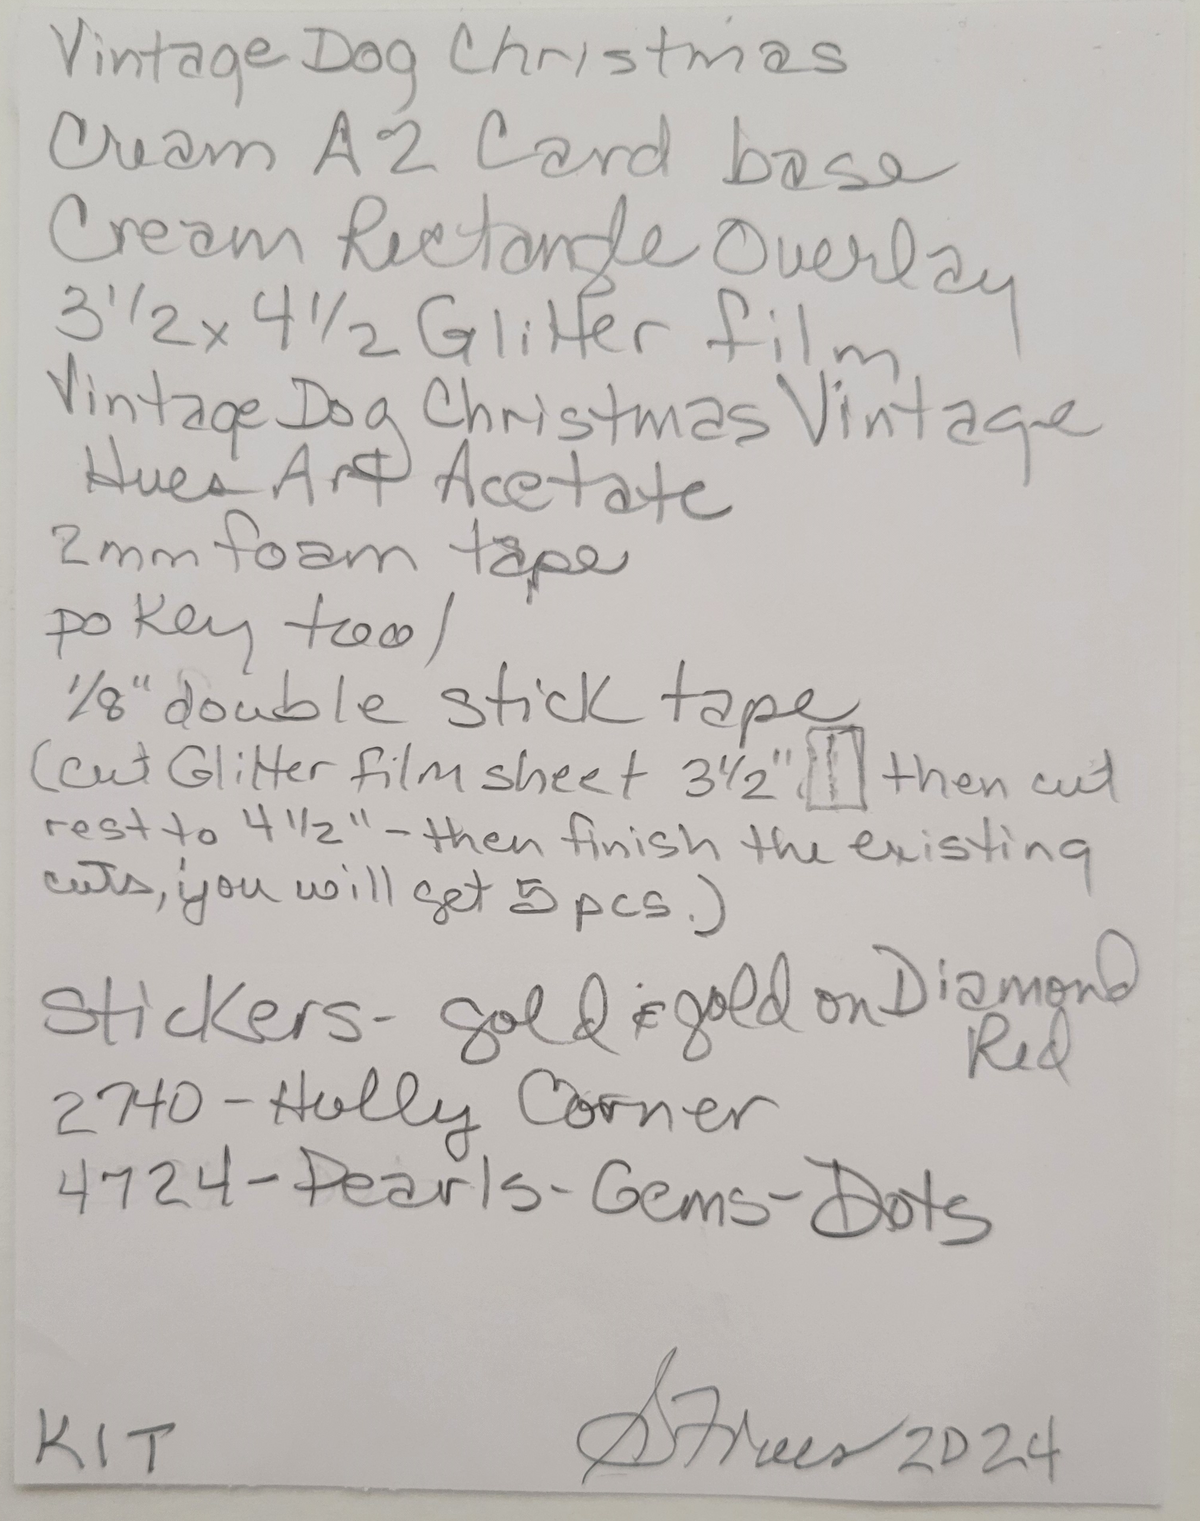 Vintage Dog Christmas
Cream A2 Card base
Cream Rectangle Overlay
3 1/2 x 4 1/2 Glitter film
Vintage Dog Christmas Vintage
Hues Art Acetate
2mm foam tape
pokey tool
1/8" double stick tape
(cut Glitter film sheet 3 1/2" then cut
rest to 4 1/2" - then finish the existing
cuts, you will get 5 pcs.)
Stickers - gold & gold on Diamond
Red
2740 - Holly Corner
4724 - Pearls - Gems - Dots
KIT
2024